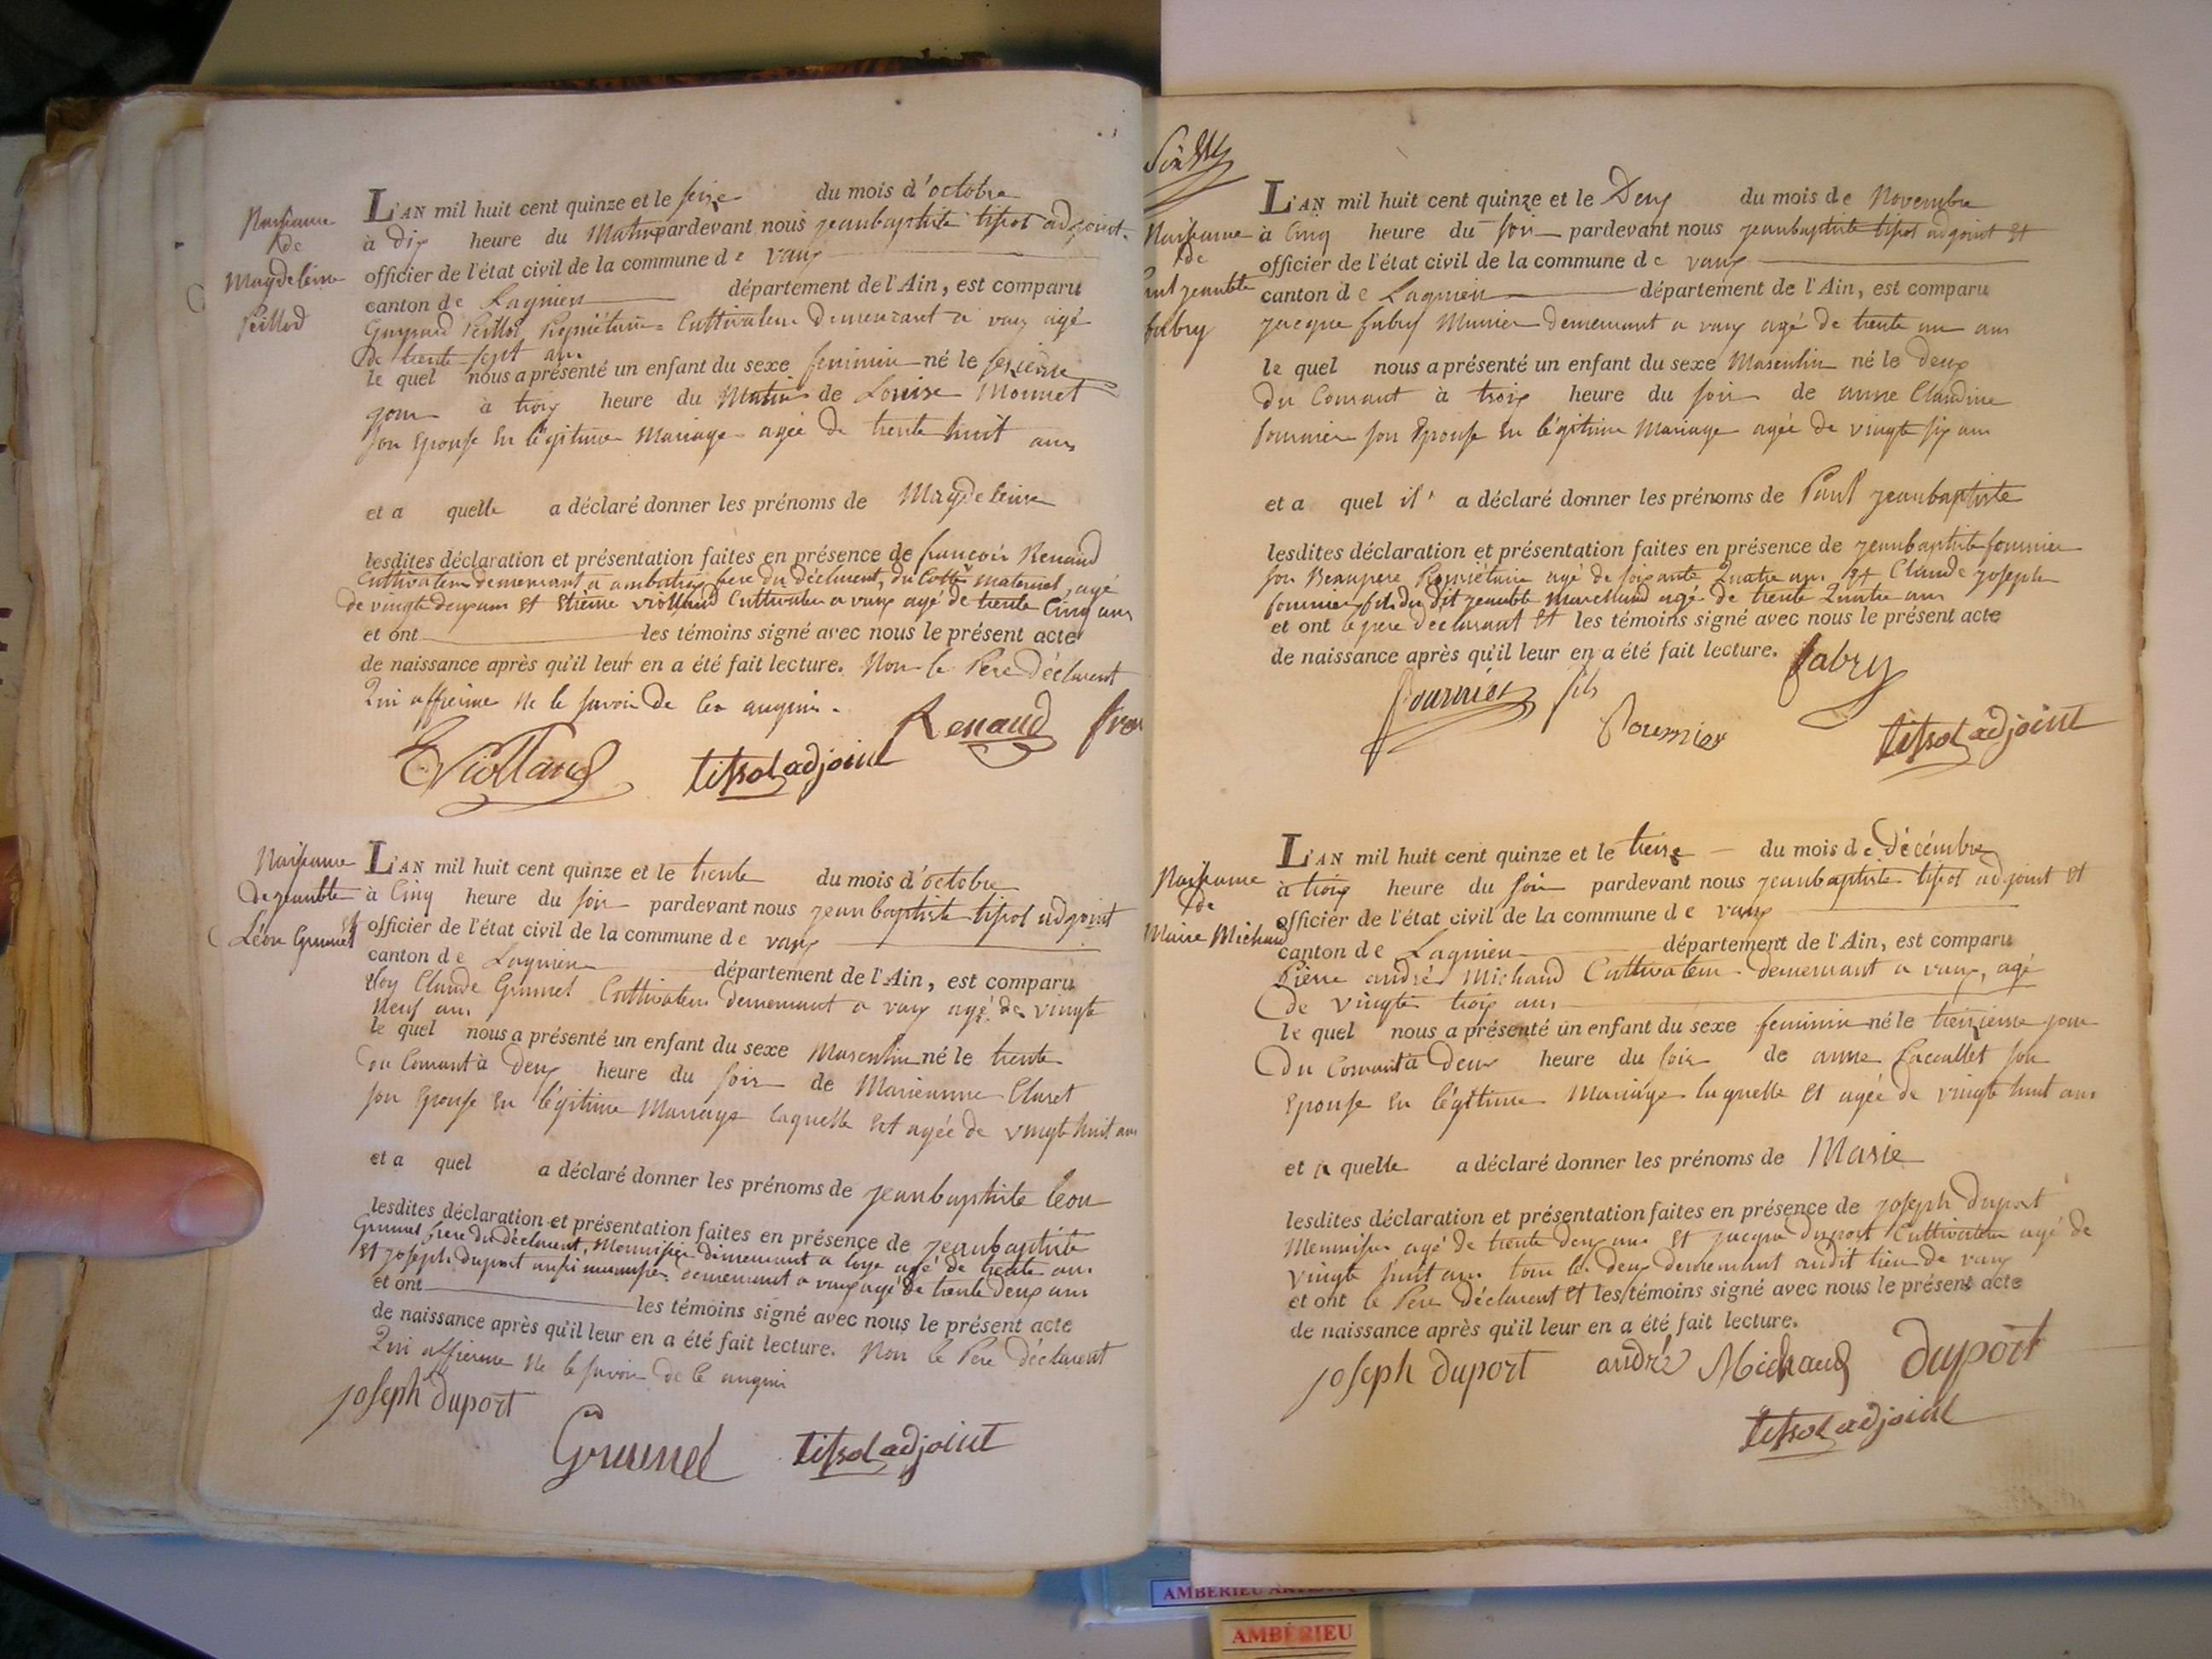 Naissance
de
Magdeleine
Peillod
L'AN mil huit cent quinze et le seize du mois d'octobre
à dix heure du Matin pardevant nous jeanbaptiste tissot adjoint
officier de l'état civil de la commune de vaux
canton de Lagnieu département de l'Ain, est comparu
Peillod Propriétaire Cultivateur demeurant a vaux agé
de trente sept ans
le quel nous a présenté un enfant du sexe feminin né le seizieme
jour à trois heure du Matin de Louise Monnet
son Epouse en légitime Mariage agée de trente huit ans
et a quelle a déclaré donner les prénoms de Magdeleine
lesdites déclaration et présentation faites en présence de françois Renaud
Cultivateur demeurant a frere du déclarent, du Cotté maternel, agé
de vingte deux ans et Etienne Violland Cultivateur a vaux agé de trente Cinq ans
et ont les témoins signé avec nous le présent acte
de naissance après qu'il leur en a été fait lecture. Non le Pere déclarent
Qui affierme ne le savoir de ce
EViolland tissot adjoint Renaud
Naissance
de jeanbte
et
Léon Grumet
L'AN mil huit cent quinze et le trente du mois d'octobre
à Cinq heure du soir pardevant nous jeanbaptiste tissot adjoint
officier de l'état civil de la commune de vaux
canton de Lagnieu département de l'Ain, est comparu
Claude Grumet Cultivateur demeurant a vaux agé de vingte
neuf ans
le quel nous a présenté un enfant du sexe Masculin né le trente
du Courant à deux heure du soir de Marieanne Claret
son Epouse en légitime Mariage laquelle est agée de vingte huit ans
et a quel a déclaré donner les prénoms de jeanbaptiste Léon
lesdites déclaration et présentation faites en présence de jeanbaptiste
Grumet frere du déclarent, Mennisier demeurant a agé de trente ans
et joseph duport aussi mennisier demeurant a vaux agé de trente deux ans
et ont les témoins signé avec nous le présent acte
de naissance après qu'il leur en a été fait lecture. Non le Pere déclarent
Qui affierme ne le savoir de ce
joseph duport
Grumel tissot adjoint
Naissance
de
paul jeanbte
fabry
L'AN mil huit cent quinze et le Deux du mois de Novembre
à Cinq heure du soir pardevant nous jeanbaptiste tissot adjoint et
officier de l'état civil de la commune de vaux
canton de Lagnieu département de l'Ain, est comparu
jacque fabry Munier demeurant a vaux agé de trente un ans
le quel nous a présenté un enfant du sexe Masculin né le deux
du Courant à trois heure du soir de anne Claudine
fournier son Epouse en légitime Mariage agée de vingte six ans
et a quel il a déclaré donner les prénoms de Paul jeanbaptiste
lesdites déclaration et présentation faites en présence de jeanbaptiste fournier
son Beaupere Propriétaire agé de soixante Quatre ans et Claude joseph
fournier fils du dit jeanbte marchand agé de trente Quatre ans
et ont le pere déclarant et les témoins signé avec nous le présent acte
de naissance après qu'il leur en a été fait lecture. fabry
fournier fils
fournier
tissot adjoint
Naissance
de
Marie Michaud
L'AN mil huit cent quinze et le treize du mois de décémbre
à trois heure du soir pardevant nous jeanbaptiste tissot adjoint et
officier de l'état civil de la commune de vaux
canton de Lagnieu département de l'Ain, est comparu
Pierre andré Michaud Cultivateur demeurant a vaux, agé
de vingte trois ans
le quel nous a présenté un enfant du sexe feminin né le treizieme jour
du Courant à deux heure du soir de anne son
Epouse en légitime Mariage laquelle est agée de vingte huit ans
et a quelle a déclaré donner les prénoms de Marie
lesdites déclaration et présentation faites en présence de joseph duport
Mennisier agé de trente deux ans et jacque duport Cultivateur agé de
vingte huit ans tous les deux demeurant audit lieu de vaux
et ont le Pere déclarent et les témoins signé avec nous le présent acte
de naissance après qu'il leur en a été fait lecture.
joseph duport andré Michaud duport
tissot adjoint
AMBERIEU
AMBÉRIEU